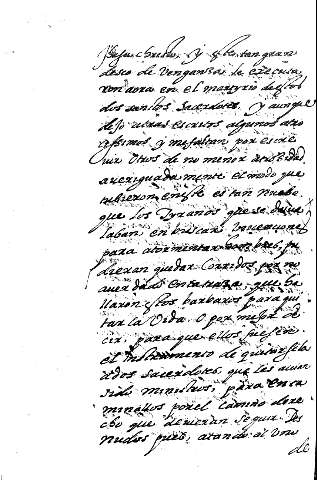 Jesu christo, y esta tan gran
deseo de venganza le executa
ron aora en el martyrio de estos
dos santos sacerdotes. y aunque
dejo otras escritos algunos atro
císsimos y me faltan por escre
uir otros de no menor atrocidad,
aueriguada mente el modo que
tubieron en este es tan nuebo
que los Tyranos que se desue
laban en buscar Inuenciones
para atormentar pu
dieran quedar Corridos por no
auer dado en la traza, que ha
llaron estos barbaros para qui
tar la Vida. O por mejor de
cir, para que ellos fuessen
el Instrumento de quitarsela
estos sacerdotes, que les auian
sido ministros, para enca
minallos por el camino dere
cho que deuieran seguir. Des
nudos pues, atando al Vno
de